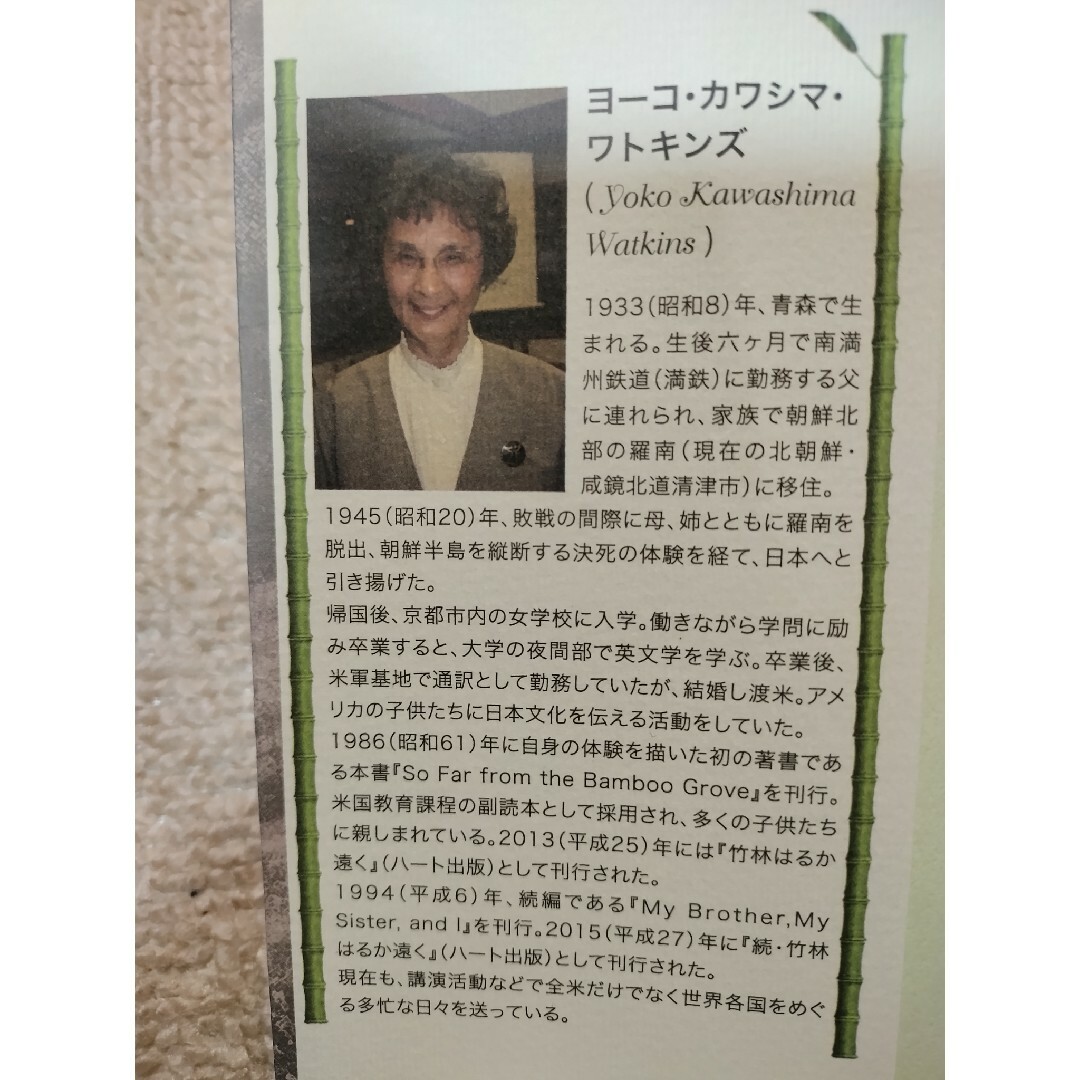 ヨーコ・カワシマ・
ワトキンズ
(Yoko Kawashima
Watkins)
1933(昭和8)年、青森で生
まれる。生後六ヶ月で南満
州鉄道(満鉄)に勤務する父
に連れられ、家族で朝鮮北
部の羅南(現在の北朝鮮・
咸鏡北道清津市)に移住。
1945(昭和20)年、敗戦の間際に母、姉とともに羅南を
脱出、朝鮮半島を縦断する決死の体験を経て、日本へと
引き揚げた。
帰国後、京都市内の女学校に入学。働きながら学問に励
み卒業すると、大学の夜間部で英文学を学ぶ。卒業後、
米軍基地で通訳として勤務していたが、結婚し渡米。アメ
リカの子供たちに日本文化を伝える活動をしていた。
1986(昭和61)年に自身の体験を描いた初の著書であ
る本書『So Far from the Bamboo Grove』を刊行。
米国教育課程の副読本として採用され、多くの子供たち
に親しまれている。2013(平成25)年には『竹林はるか
遠く』(ハート出版)として刊行された。
1994(平成6)年、続編である『My Brother,My
Sister, and I』を刊行。2015(平成27)年に『続・竹林
はるか遠く』(ハート出版)として刊行された。
現在も、講演活動などで全米だけでなく世界各国をめぐ
る多忙な日々を送っている。